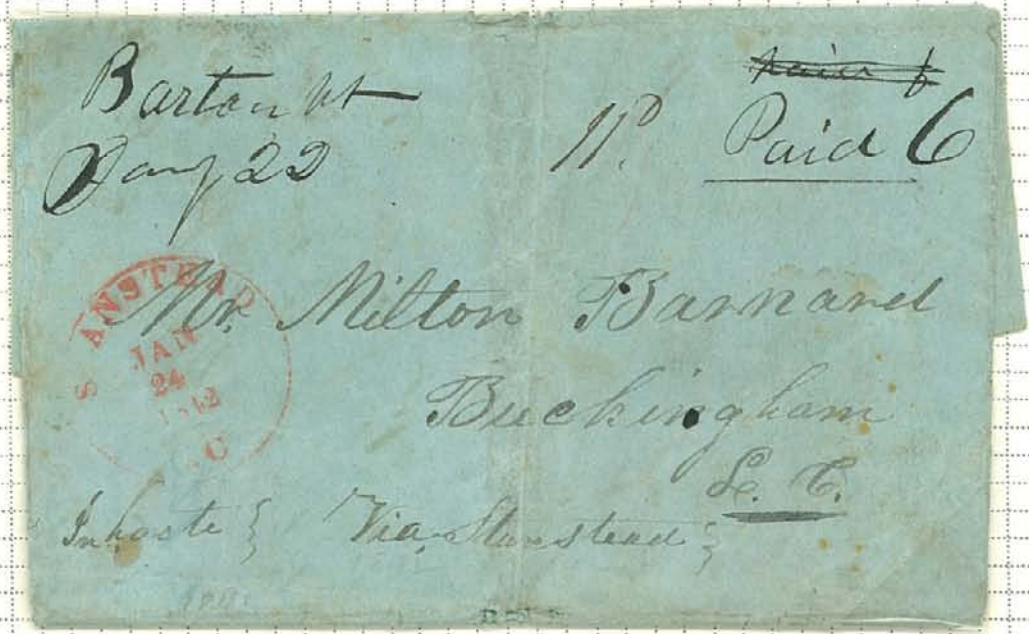 Barton Vt
Jany 22
paid 6
11d. Paid 6
STANSTEAD
JAN
24
1842
L.C
Mr. Milton Barnard
Buckingham
L. C.
In haste } Via Stanstead }